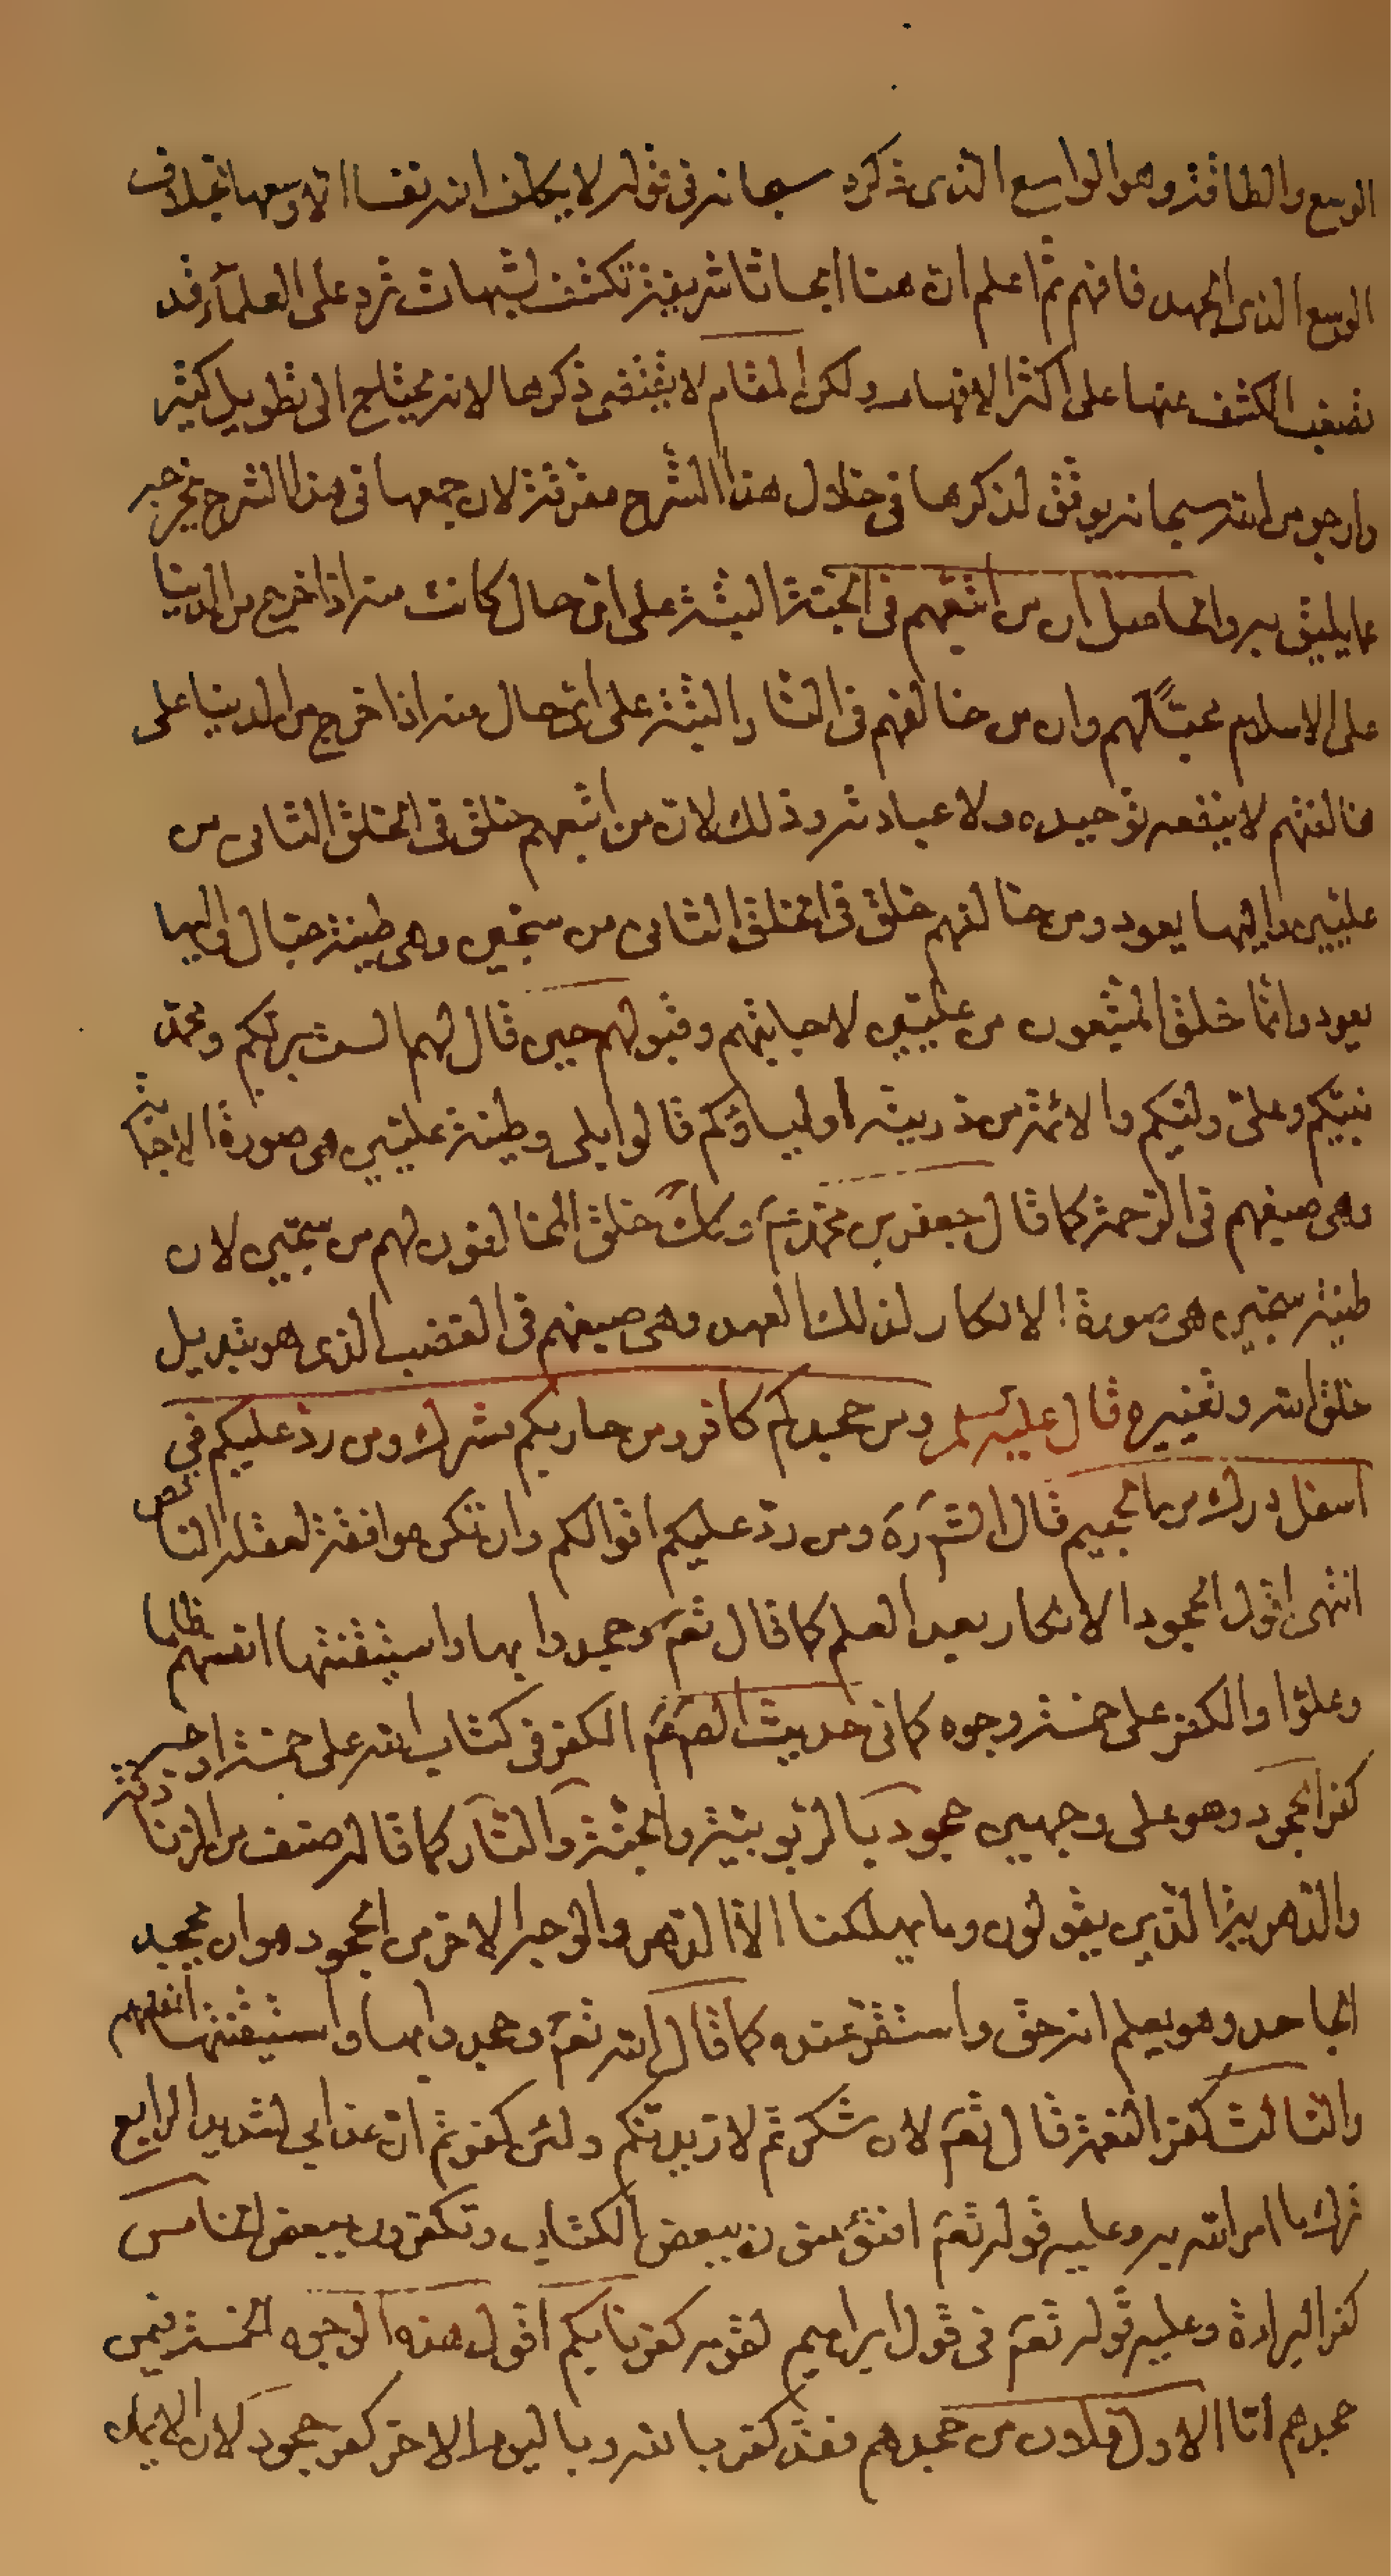 الوسع والطاقة وهو الواسع الذى ذكره سبحانه فى قوله لا يكلف الله نفسا الا وسعها بخلاف
الوسع الذى الجهد فافهم ثم اعلم ان هنا ابحاثا شريفة تكشف لشبهات ترد على العلماء قد
تصعب الكشف عنها على اكثر الافهام ولكن المقام لا يقتضى ذكرها لانه يحتاج الى تطويل كثير
وارجو من الله سبحانه يوفق لذكرها فى خلال هذا الشرح مفرقة لان جمعها فى هذا الشرح يخرجه
عما يليق به والحاصل ان من اتبعهم فى الجنة البتة على اى حال كانت منه اذا خرج من الدنيا
على الاسلام محبّاً لهم وان من خالفهم فى النار البتة على اى حال منه اذا خرج من الدنيا على
مخالفتهم لا ينفعه توحيده ولا عبادته وذلك لان من اتبعهم خلق فى الخلق الثانى من
عليين واليها يعود ومن خالفهم خلق فى الخلق الثانى من سجين وهى طينة خبال واليها
يعود وانما خلق المتبعون من عليين لاجابتهم وقبولهم حين قال لهم الست بربكم ومحمد
نبيكم وعلى وليكم والائمة من ذريته اولياؤكم قالوا بلى وطينة عليين هى صورة الاجابة
وهى صبغهم فى الرحمة كما قال جعفر بن محمد عم وكك خلق المخالفون لهم من سجين لان
طينة سجين هى صورة الانكار لذلك العهد وهى صبغهم فى الغضب الذى هو تبديل
خلق الله وتغييره قال عليه السلم ومن جحدكم كافر ومن حاربكم مشرك ومن رد عليكم فى
اسفل درك من الجحيم قال الش ره ومن رد عليكم اقوالكم وان تكن موافقة لعقله الناقص
انتهى اقول الجحود الانكار بعد العلم كما قال تعم وجحدوا بها واستيقنتها انفسهم ظلما
وعلوا والكفر على خمسة وجوه كما فى حديث الص عم الكفر فى كتاب الله على خمسة اوجه
كفر الجحود وهو على وجهين جحود بالربوبية والجنة والنار كما قاله صنف من الزنادقة
والدهرية الذين يقولون وما يهلكنا الا الدهر والوجه الاخر من الجحود هو ان يجحد
الجاحد وهو يعلم انه حق واستقر عنده كما قال الله تعم وجحدوا بها واستيقنتها انفسهم
والثالث كفر النعمة قال تعم لان شكرتم لازيدنكم ولئن كفرتم ان عذابى لشديد الرابع
ترك ما امر الله به وعليه قوله تعم افتؤمنون ببعض الكتاب وتكفرون ببعض الخامس
كفر البرادة وعليه قوله تعم فى قول ابراهيم لقومه كفرنا بكم اقول هذه الوجوه الخمسة فيمن
جحدهم اما الاول فلان من جحدهم فقد كفر بالله وباليوم الاخر كفر جحود لان الايمان